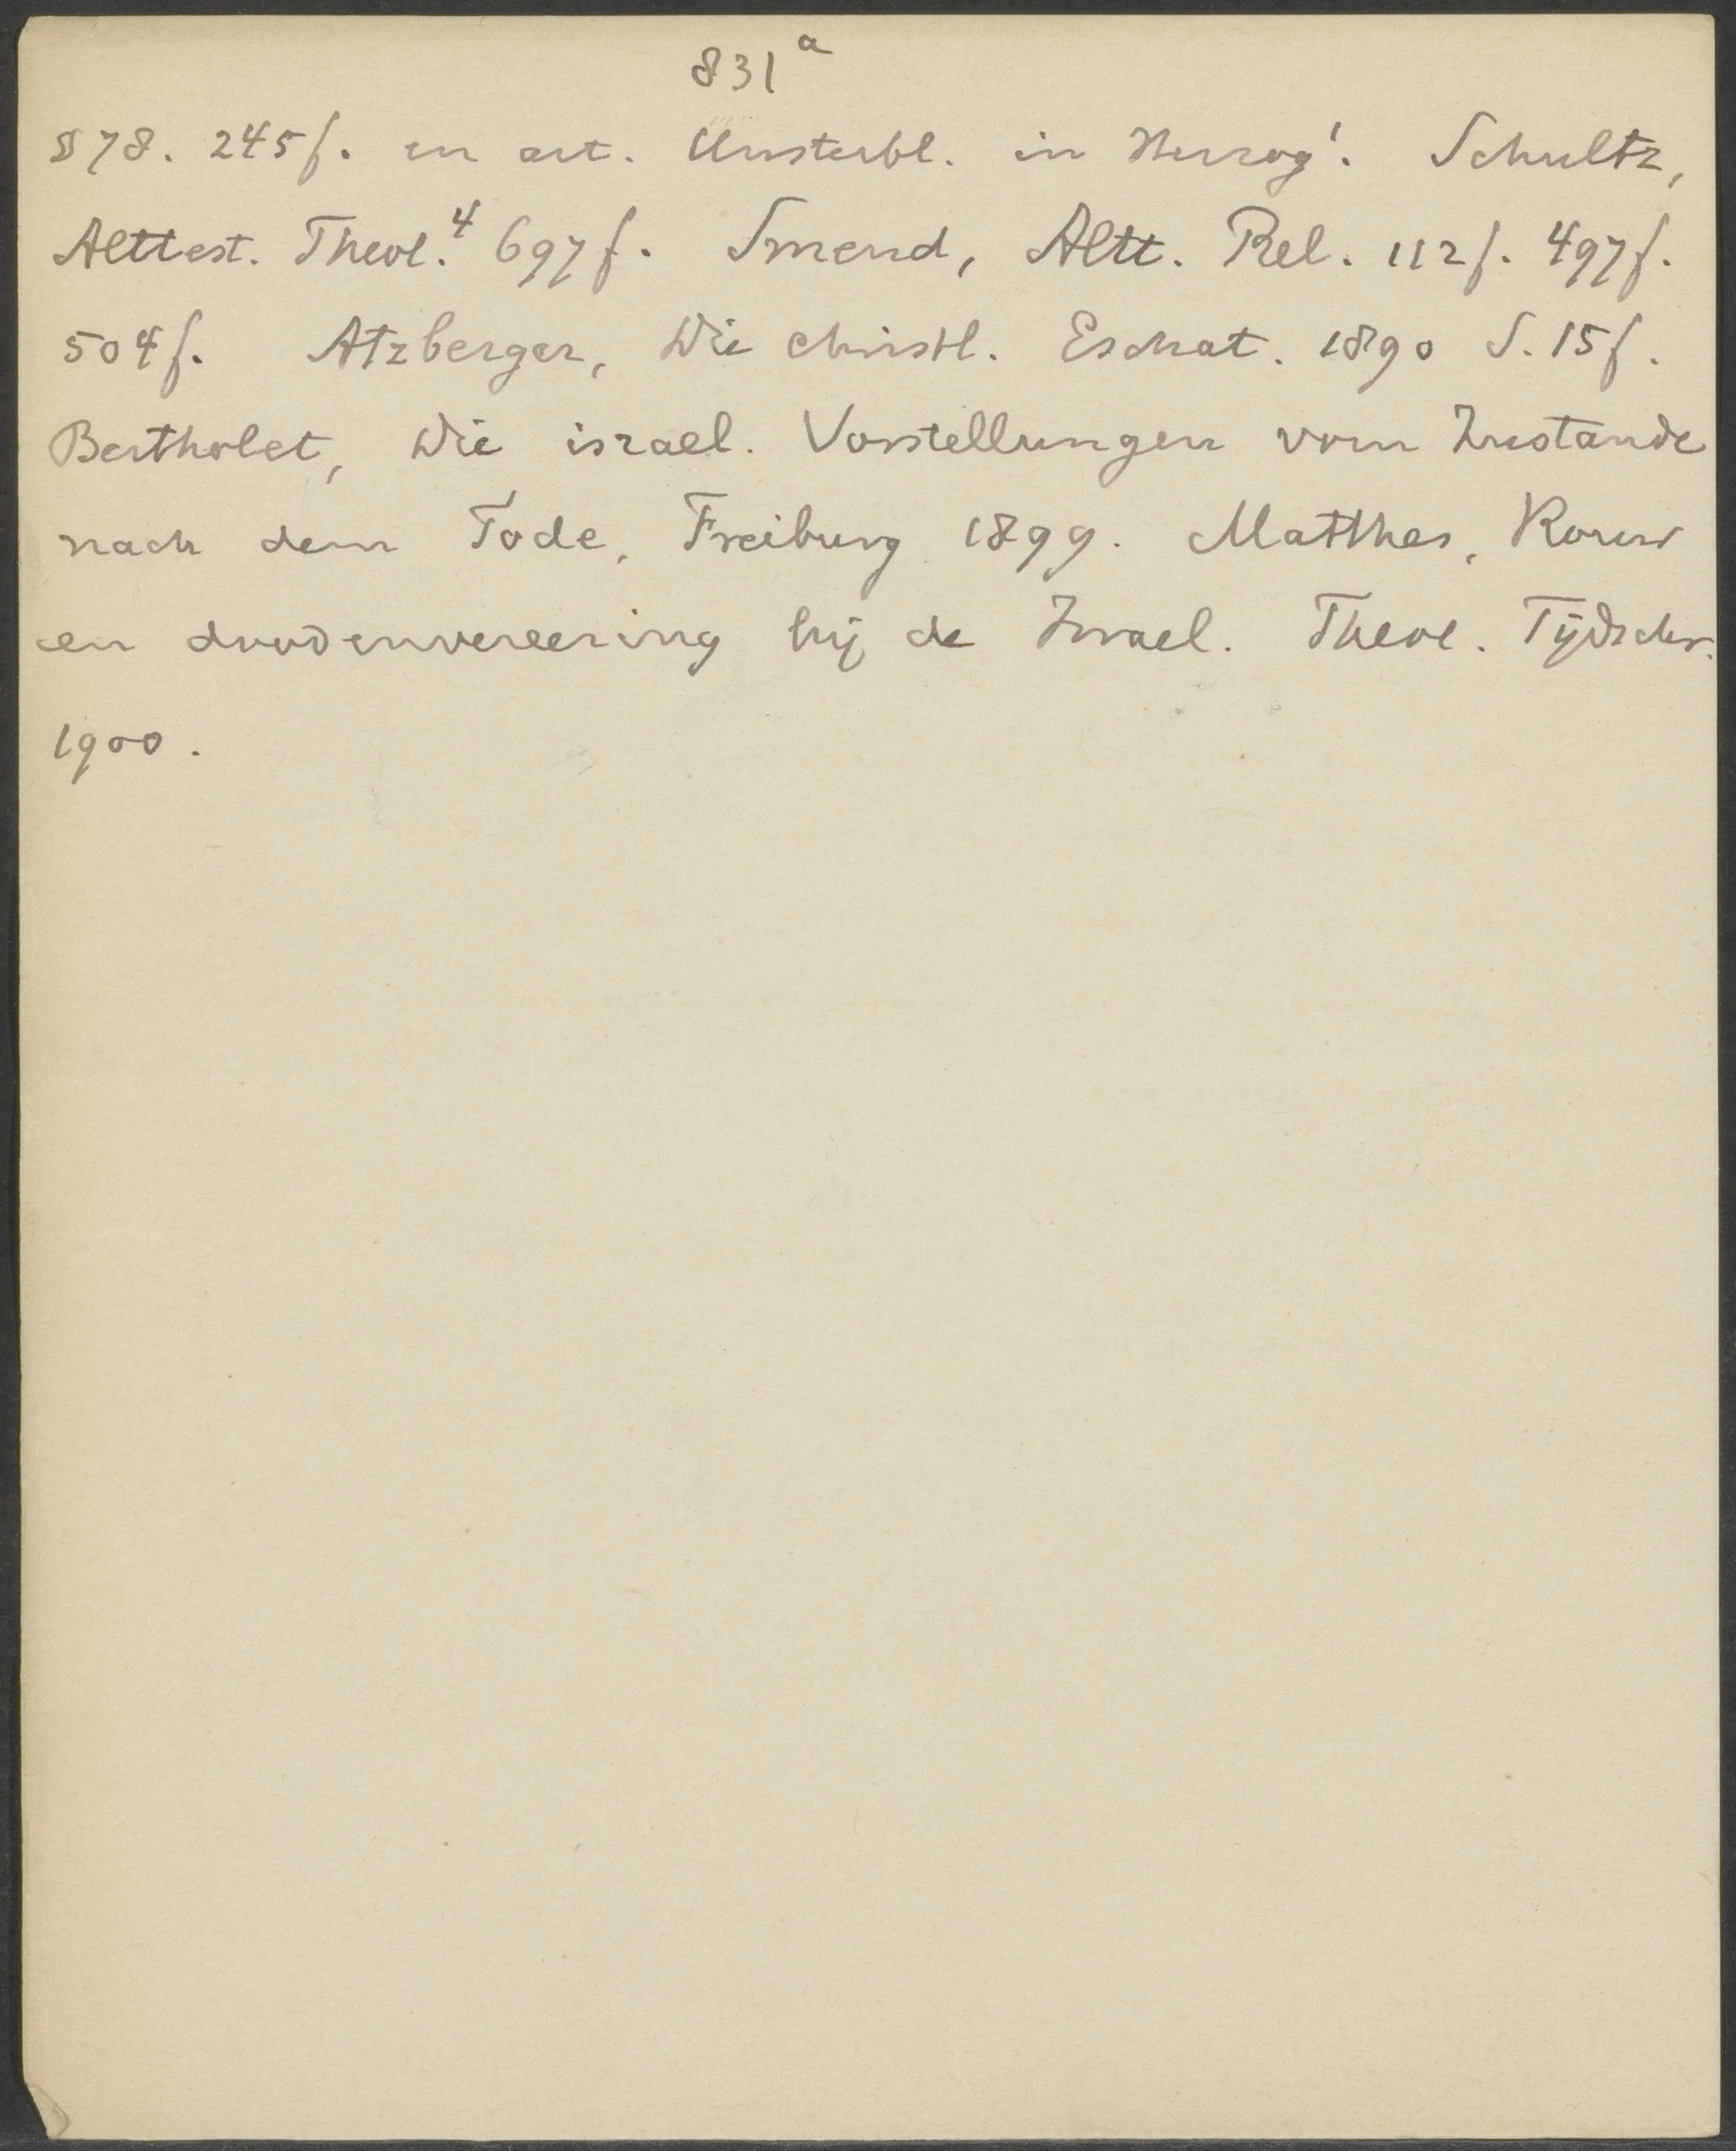 831a
§ 78. 245 f. en art. Unsterbl. in Herzog¹. Schultz,
Alttest. Theol.⁴ 697 f. Smend, Altt. Rel. 112 f. 497 f.
504 f. Atzberger, Die christl. Eschat. 1890 S. 15 f.
Bertholet, Die israel. Vorstellungen vom Zustande
nach dem Tode, Freiburg 1899. Matthes, Rouw
en doodenvereering bij de Israel. Theol. Tijdschr.
1900.